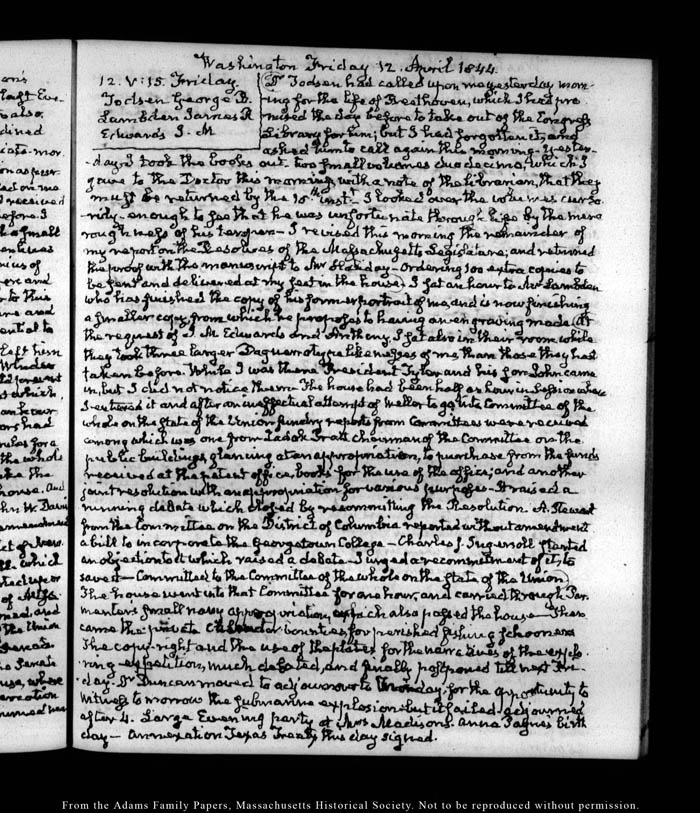 Washington Friday 12. April 1844.
12. V:15. Friday
Todsen George P.
Lambden James R
Edwards J. M
Dr Todsen had called upon me yesterday morn-
ing for the life of Beethoven, which I had pro
mised the day before to take out of the Congress
Library for him; but I had forgotten it, and
asked him to call again this morning. Yester-
day I took the books out. two small volumes duodecimo, which I
gave to the Doctor this morning with a note of the Librarian, that they
must be returned by the 10th inst. I looked over the volumes curso
rily enough to see that he was unfortunate through life by the mere
roughness of his temper. I revised this morning the remainder of
my report on the Resolves of the Massachusetts Legislature; and returned
the proof with the manuscript to Mr Haliday ordering 100 extra copies to
be sent and delivered at my seat in the house. I sat an hour to Mr Lambden
who has finished the copy of his former portrait of me, and is now finishing
a smaller copy, from which he proposes to having an engraving made. At
the request of J. M Edwards and Anthony, I sat also in their room while
they took three larger Daguerreotype likenesses of me than those they had
taken before. While I was there President Tyler and his son John came
in, but I did not notice them. The house had been half an hour in session when
I entered it and after an ineffectual attempt of Weller to go into Committee of the
whole on the state of the Union sundry reports from Committees were received
among which was one from Zadok Pratt chairman of the Committee on the
public buildings, glancing at an appropriation, to purchase from the funds
received at the patent office, books for the use of the office; and another
joint resolution with an appropriation for various purposes. It raised a
running debate which closed by recommitting the Resolution. A. Stewart
from the Committee on the District of Columbia reported without amendment
a bill to incorporate the Georgetown College – Charles J. Ingersoll started
an objection to it which raised a debate. I urged a recommitment of it, to
save it – Committed to the Committee of the whole on the state of the Union.
The house went into that Committee for an hour, and carried through Par
menter's small navy appropriation, which also passed the house. Then
came the private Calendar bounties for perished fishing schooners
The copy-right and the use of the plates for the narratives of the explo
ring expedition, much debated, and finally postponed till next Fri-
day. Dr Duncan moved to adjourn over to Monday, for the opportunity to
witness to morrow the submarine explosion: but it failed. adjourned
after 4. Large Evening party at Mrs Madison's. Anna Payne's birth
day – Annexation Texas Treaty this day signed.
From the Adams Family Papers, Massachusetts Historical Society. Not to be reproduced without permission.